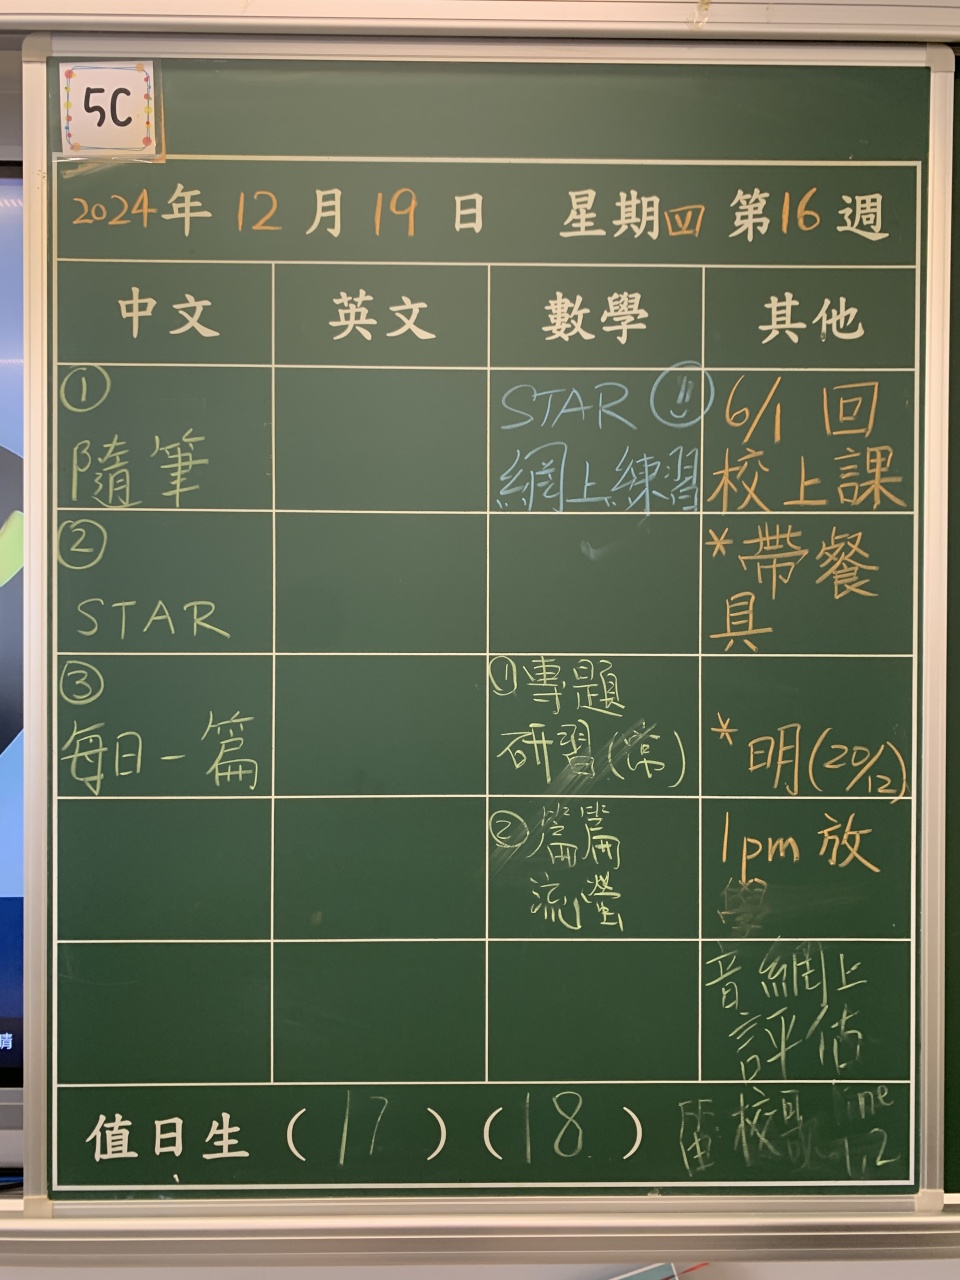 5C
2024年 12月 19日 星期四 第16週
中文 英文 數學 其他
①
隨筆
②
STAR
③
每日一篇
STAR
網上練習
①專題
研習(常)
②篇篇
流螢
6/1 回
校上課
*帶餐
具
*明(20/12)
1pm 放
學
音網上
評估
校歌 line
1,2
值日生 (17) (18)
晴